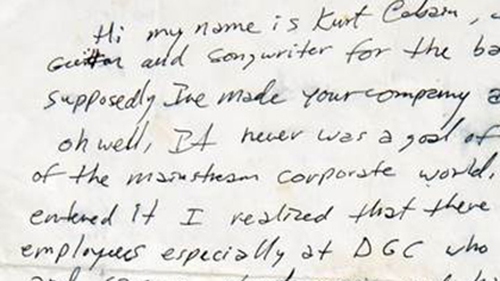 Hi my name is Kurt Cobain,
and songwriter for the ba
supposedly Ive made your company a
oh well, It never was a goal of
of the mainstream corporate world,
entered it I realized that there
employees especially at DGC who